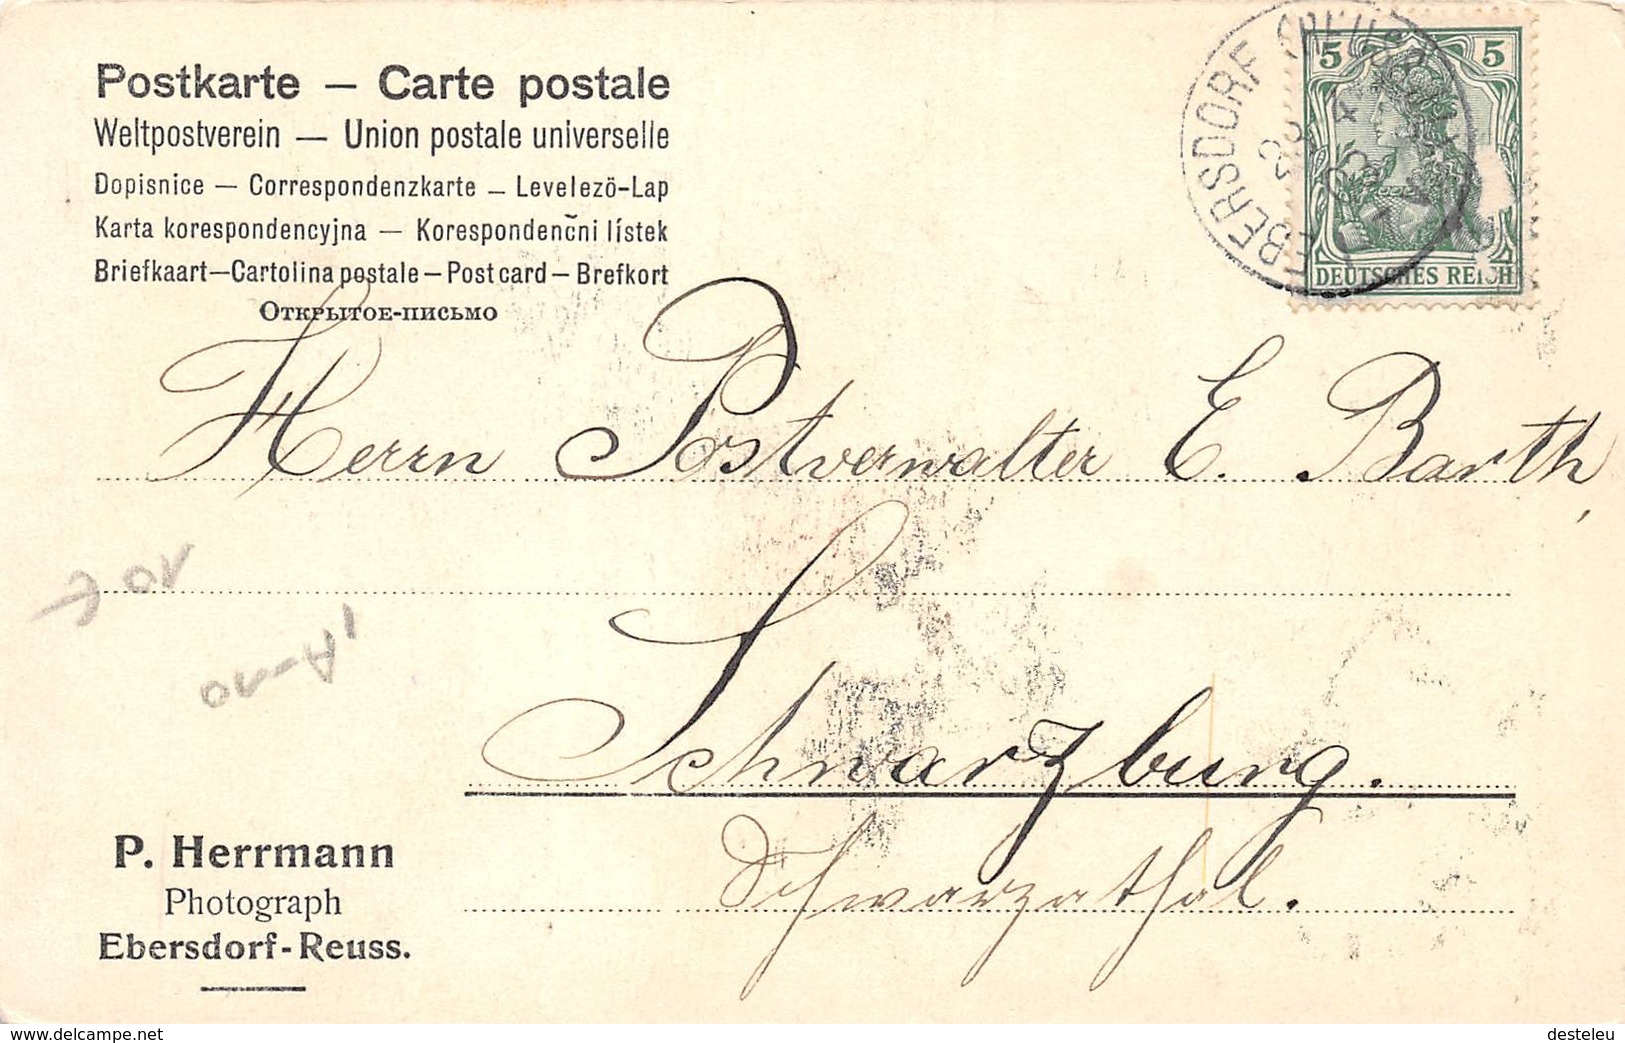 Postkarte — Carte postale
Weltpostverein — Union postale universelle
Dopisnice — Correspondenzkarte — Levelező-Lap
Karta korespondencyjna — Korespondenčni lístek
Briefkaart—Cartolina postale—Post card—Brefkort
Открытое-письмо
EBERSDORF (REUSS)
5 5
DEUTSCHES REICH
Herrn Postverwalter E. Barth,
Schwarzburg.
Schwarzathal.
P. Herrmann
Photograph
Ebersdorf-Reuss.
www.delcampe.net
desteleu